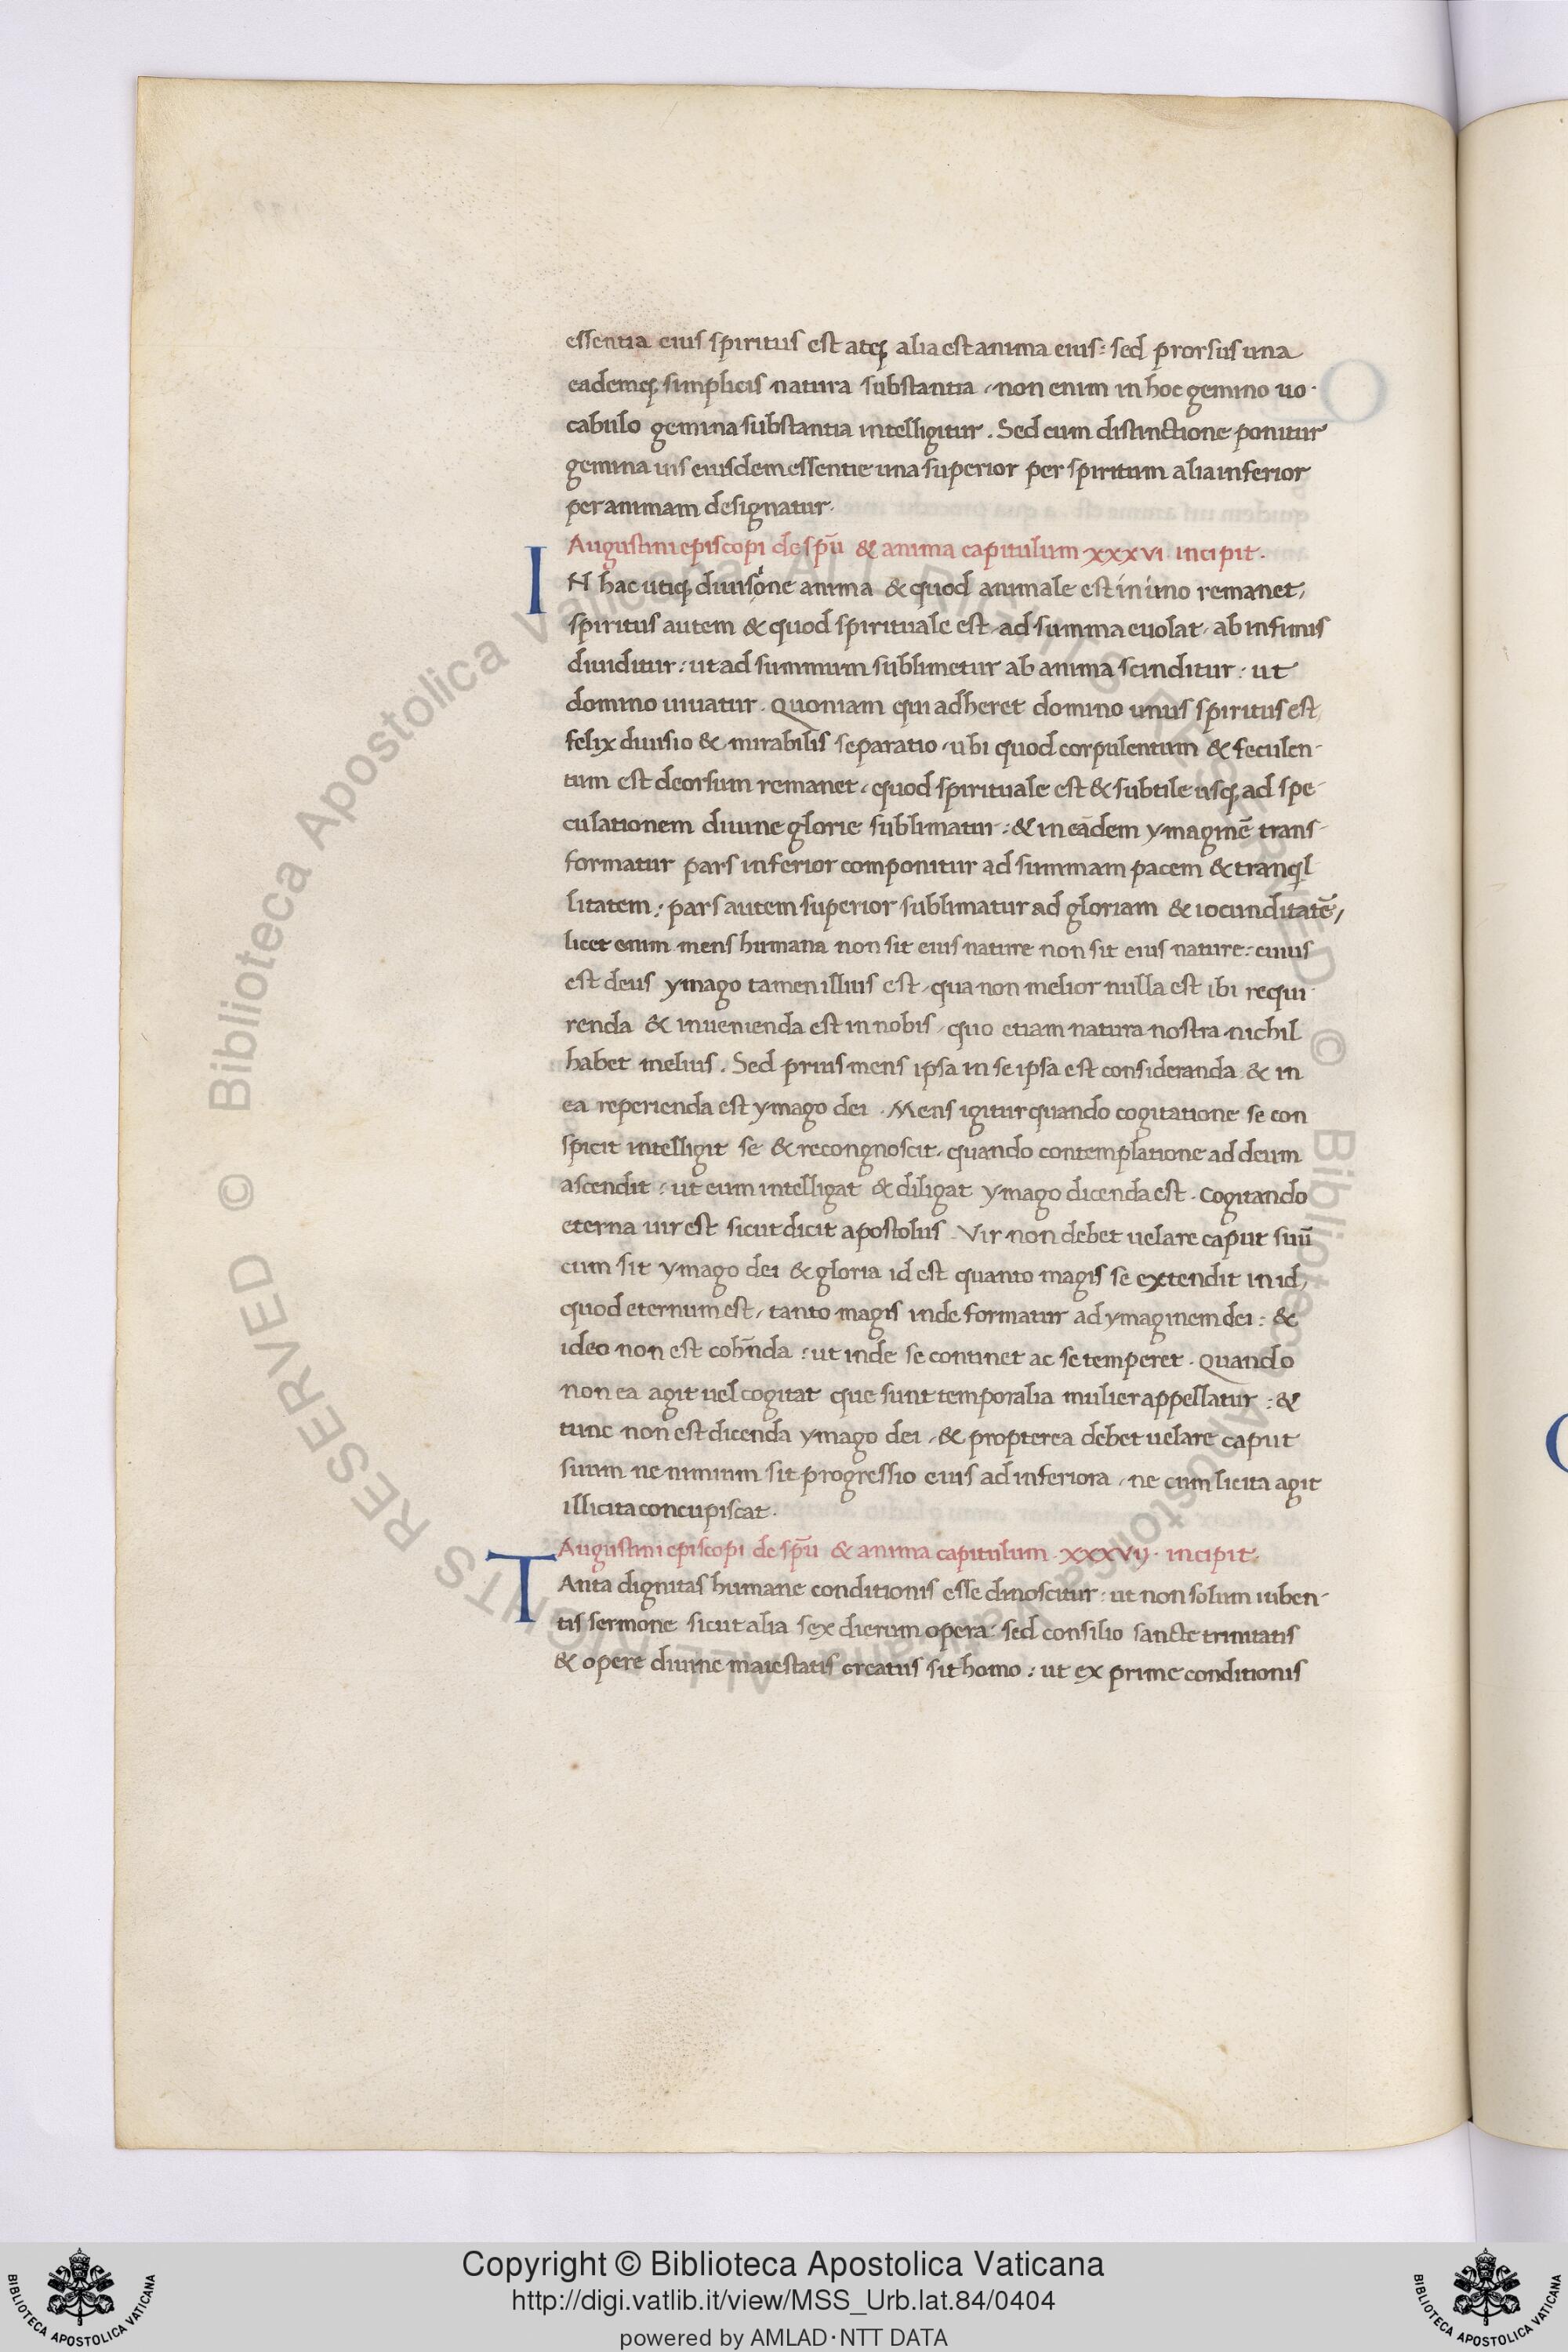 essentia eius spiritus est atq; alia est anima eius: sed prorsus una
eademq; simplicis natura substantia, non enim in hoc gemino uo-
cabulo gemina substantia intelligitur. Sed cum distinctione ponitur
gemina uis eiusdem essentie una superior per spiritum alia inferior
per animam designatur.
Augustini episcopi de spū & anima capitulum xxxvi incipit.
IN hac utiq; diuisione anima & quod animale est in imo remanet,
spiritus autem & quod spirituale est, ad summa euolat, ab infimis
diuiditur: ut ad summum sublimetur ab anima scinditur: ut
domino uniatur. Quoniam qui adheret domino unus spiritus est,
felix diuisio & mirabilis separatio, ubi quod corpulentum & feculen-
tum est deorsum remanet, quod spirituale est & subtile usq; ad spe-
culationem diuine glorie sublimatur: & in eādem ymaginē trans-
formatur pars inferior componitur ad summam pacem & tranql-
litatem: pars autem superior sublimatur ad gloriam & iocunditatē,
licet enim mens humana non sit eius nature non sit eius nature: cuius
est deus ymago tamen illius est, qua non melior nulla est ibi requi-
renda & inuenienda est in nobis, quo etiam natura nostra nichil
habet melius. Sed prius mens ipsa in se ipsa est consideranda & in
ea reperienda est ymago dei. Mens igitur quando cogitatione se con
spicit intelligit se & recongnoscit, quando contemplatione ad deum
ascendit: ut eum intelligat & diligat ymago dicenda est. Cogitando
eterna uir est sicut dicit apostolus. Vir non debet uelare caput suū
cum sit ymago dei & gloria id est quanto magis se extendit in id,
quod eternum est, tanto magis inde formatur ad ymaginem dei: &
ideo non est cohn̄da: ut inde se continet ac se temperet. Quando
non ea agit uel cogitat que sunt temporalia mulier appellatur: &
tunc non est dicenda ymago dei, & propterea debet uelare caput
suum ne nimium sit progressio eius ad inferiora, ne cum licita agit
illicita concupiscat.
Augustini episcopi de spū & anima capitulum xxxvij. incipit.
TAnta dignitas humane conditionis esse dinoscitur: ut non solum iuben-
tis sermone sicut alia sex dierum opera sed consilio sancte trinitatis
& opere diuine maiestatis creatus sit homo: ut ex prime conditionis
© Biblioteca Apostolica Vaticana ALL RIGHTS RESERVED © Biblioteca Apostolica Vaticana ALL RIGHTS RESERVED
Copyright © Biblioteca Apostolica Vaticana
http://digi.vatlib.it/view/MSS_Urb.lat.84/0404
powered by AMLAD·NTT DATA
BIBLIOTECA APOSTOLICA VATICANA
BIBLIOTECA APOSTOLICA VATICANA